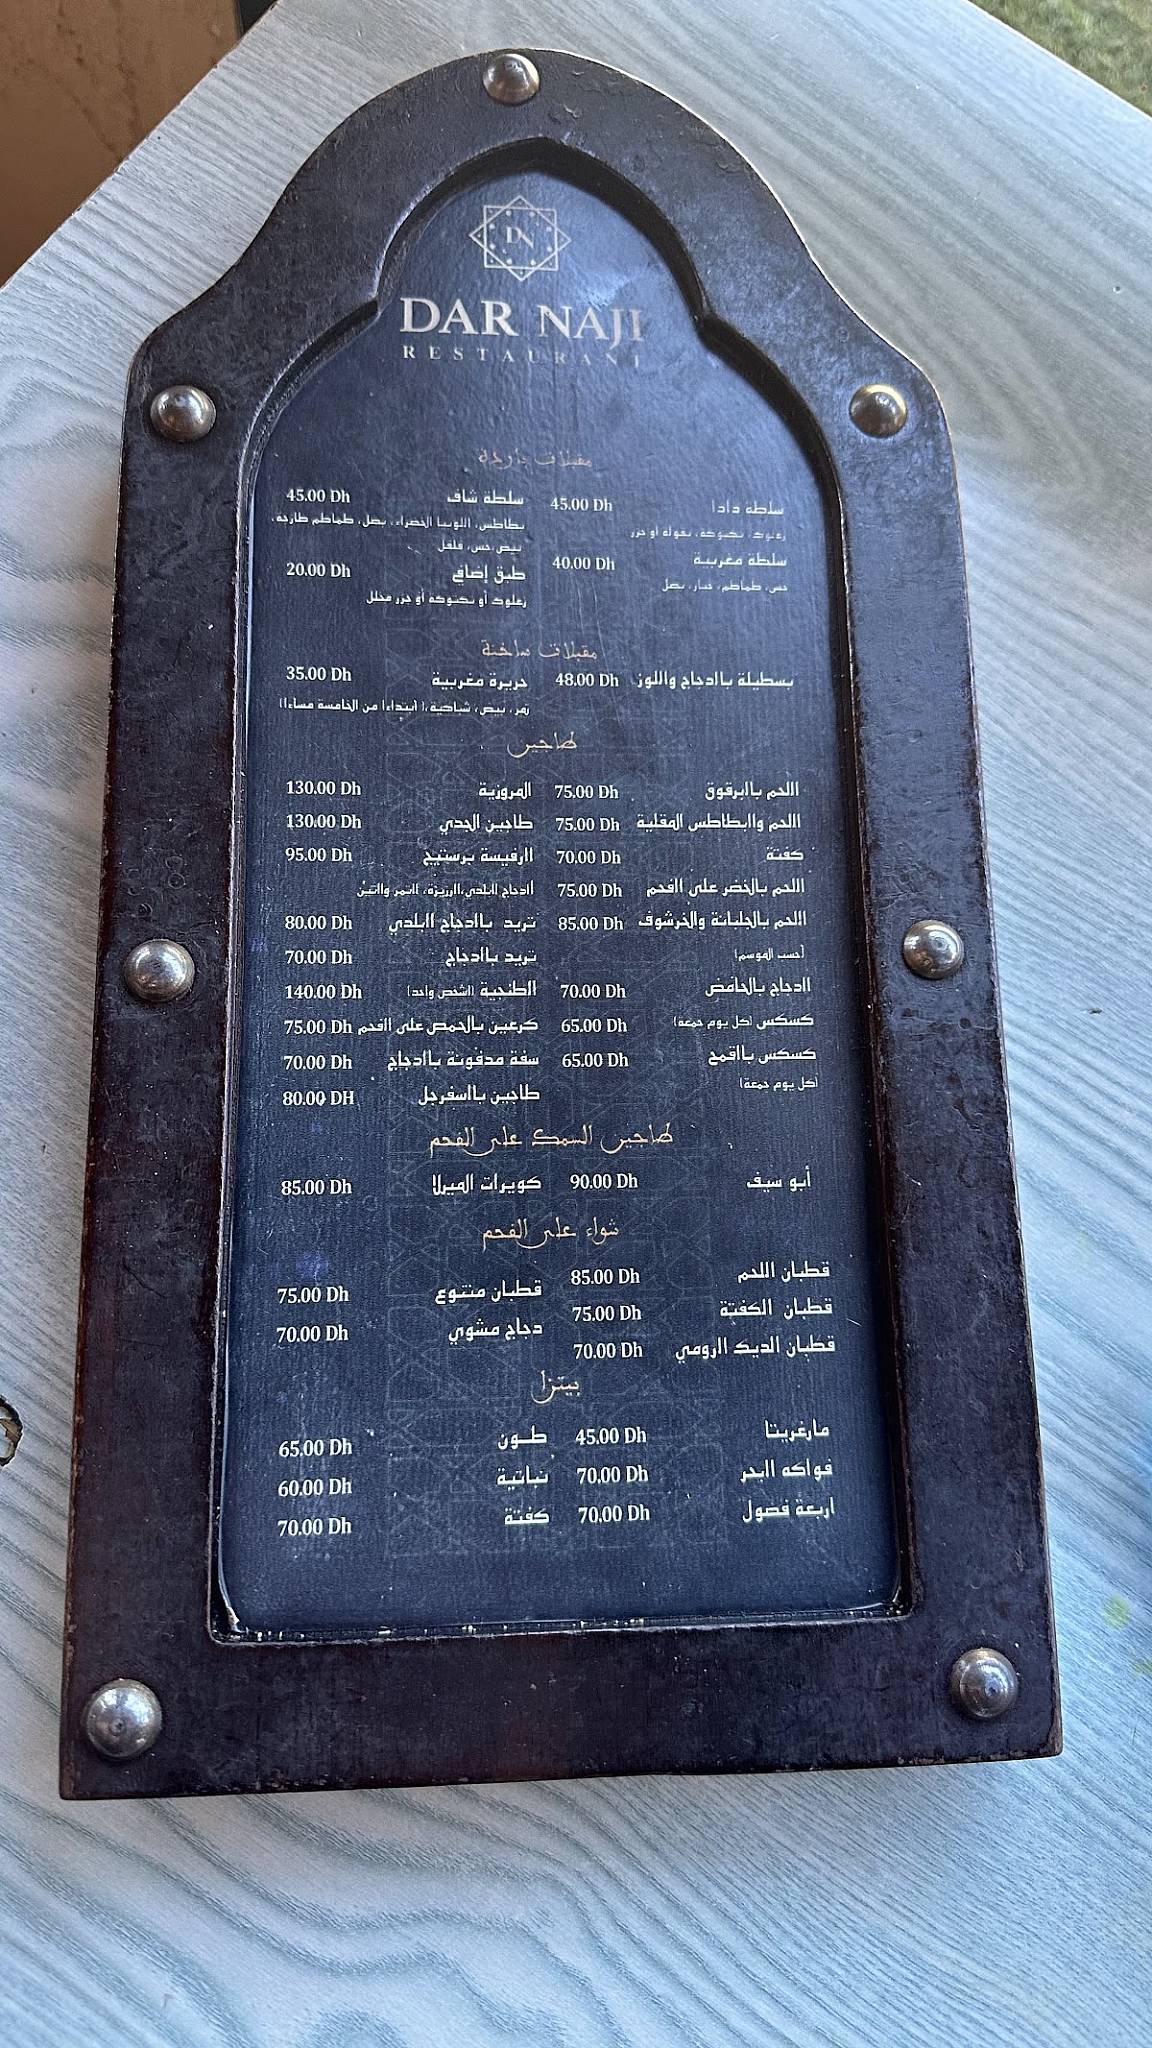 DN
DAR NAJI
RESTAURANT
مقبلات باردة
سلطة دادا 45.00 Dh
زعلوك، تكتوكة، بقولة أو جزر
سلطة مغربية 40.00 Dh
خس، طماطم، خيار، بصل
سلطة شاف 45.00 Dh
بطاطس، اللوبيا الخضراء، بصل، طماطم طازجة،
بيض،خس، فلفل
طبق إضافي 20.00 Dh
زعلوك أو تكتوكة أو جزر مخلل
مقبلات ساخنة
بسطيلة باادجاج واللوز 48.00 Dh
حريرة مغربية 35.00 Dh
تمر، بيض، شباكية،( ابتداءا من الخامسة مساءا)
طاجين
االحم باابرقوق 75.00 Dh
االحم واابطاطس المقلية 75.00 Dh
كفتة 70.00 Dh
االحم بالخضر على الفحم 75.00 Dh
االحم بالجلبانة والخرشوف 85.00 Dh
(حسب الموسم)
اادجاج بالحامض 70.00 Dh
كسكس (كل يوم جمعة) 65.00 Dh
كسكس بااقمح 65.00 Dh
(كل يوم جمعة)
المروزية 130.00 Dh
طاجين الجدي 130.00 Dh
اارفيسة برستيج 95.00 Dh
اادجاج االبلدي،اارزيزة، التمر واالتين
تريد باادجاج اابلدي 80.00 Dh
تريد باادجاج 70.00 Dh
االطنجية (اشخص واحد) 140.00 Dh
كرعين بالحمص على الفحم 75.00 Dh
سفة مدفونة باادجاج 70.00 Dh
طاجين بااسفرجل 80.00 DH
طاجين السمك على الفحم
أبو سيف 90.00 Dh
كويرات الميرلا 85.00 Dh
شواء على الفحم
قطبان اللحم 85.00 Dh
قطبان الكفتة 75.00 Dh
قطبان الديك االرومي 70.00 Dh
قطبان متنوع 75.00 Dh
دجاج مشوي 70.00 Dh
بيتزا
مارغريتا 45.00 Dh
فواكه اابحر 70.00 Dh
اربعة فصول 70.00 Dh
طـون 65.00 Dh
نباتية 60.00 Dh
كفتة 70.00 Dh